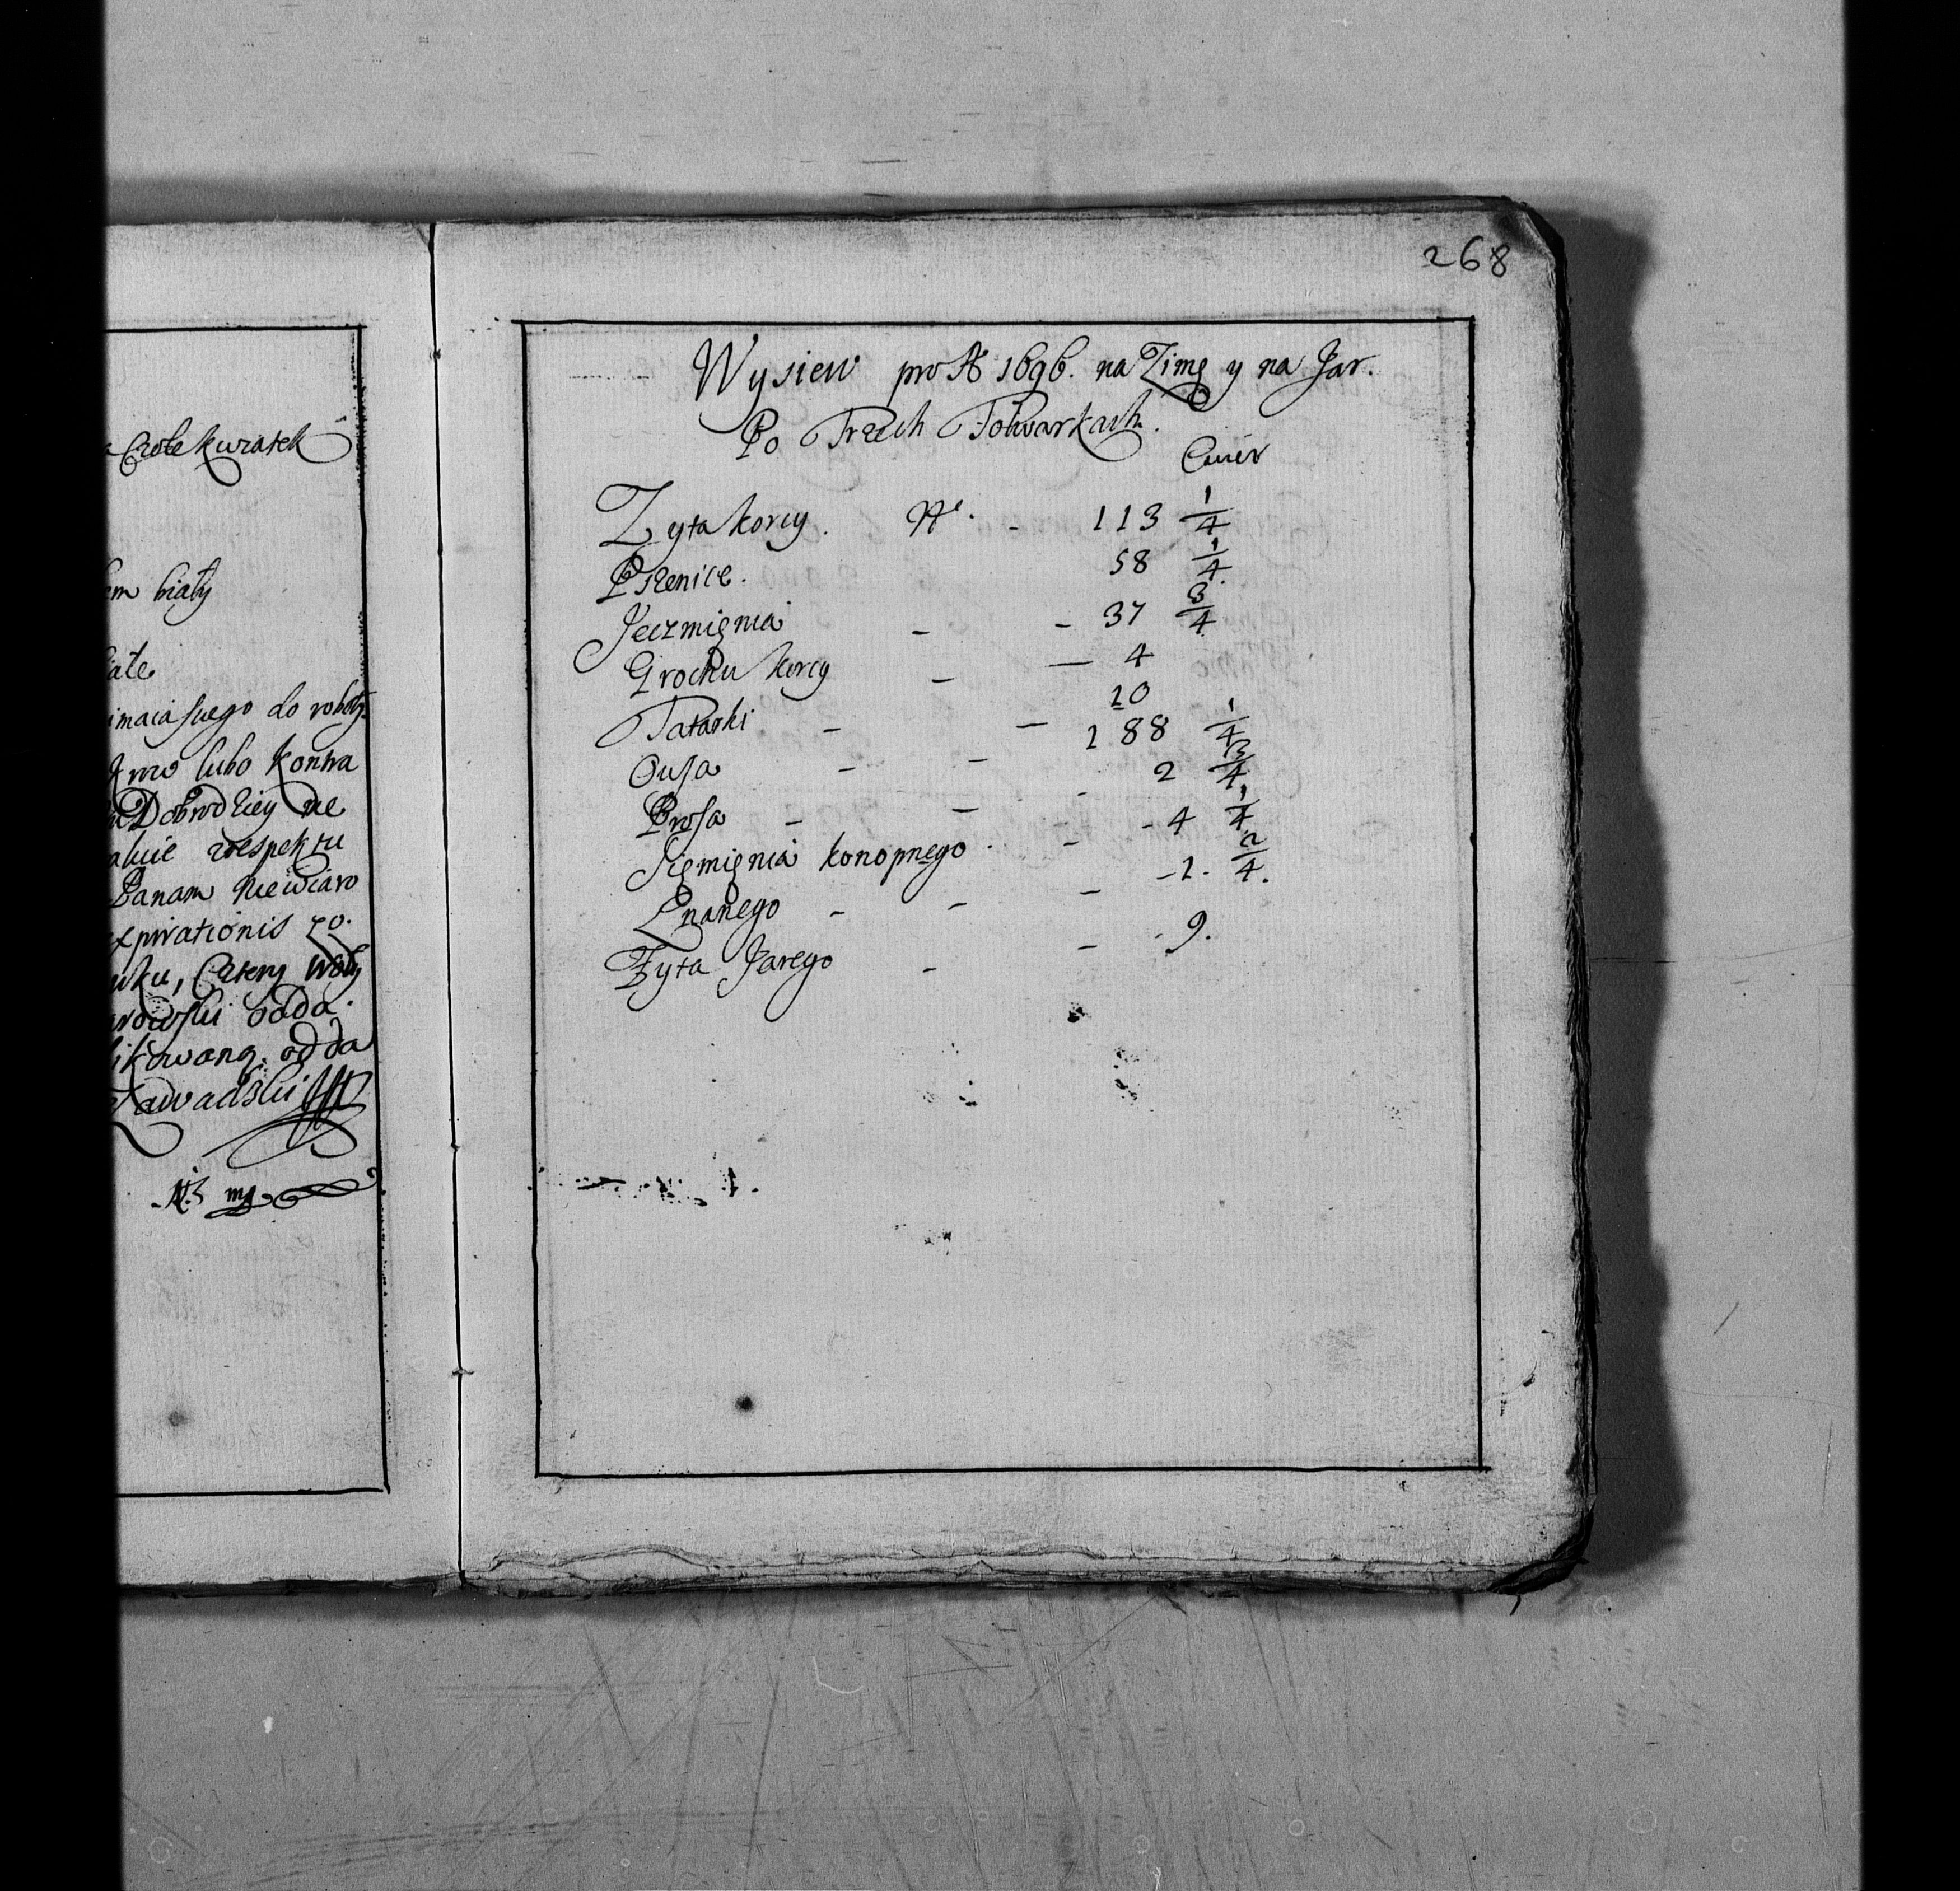 Crole kuratek
biały
iałe
imaiąsuego do roboty
lubo Kontra
Dobrodziey nie
respektu
Panam niewiaro
expirationis 70.
Cztery Woły
odda
odda
Zawadski
mp
268
Wysiew pro A 1696. na Zimę y na Jar.
Po Trzech Folwarkach.
Cwier
Zyta korcy. No. - 113 1/4
Pszenice. 58 1/4
Jeczmięnia - - 37 3/4
Grochu korcy - — 4
Tatarki - — 10
Owsa - - 188 1/4
Prosa - - - 2 3/4
Siemięnia konopnego. - - 4 1/4
Lnanego - - - -1. 2/4.
Zyta Jarego - - 9.